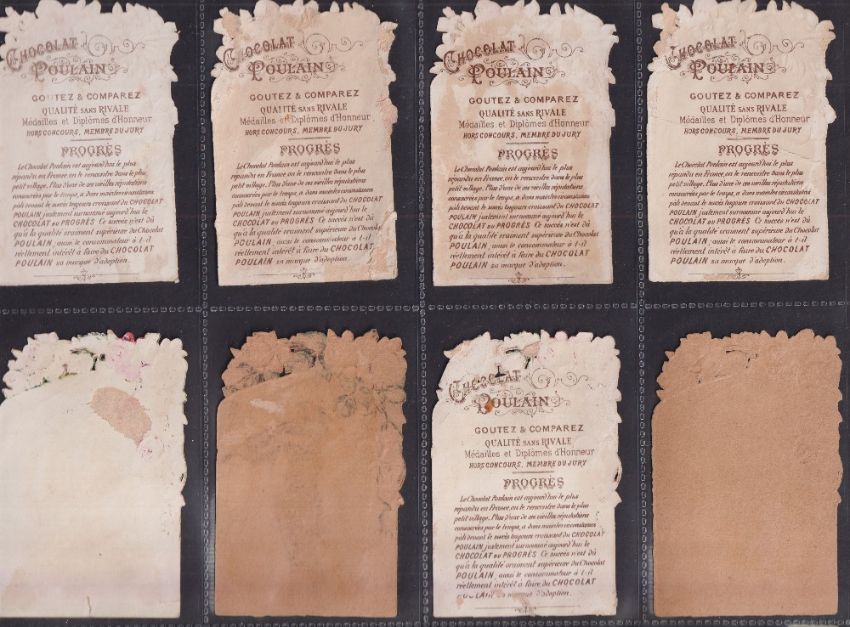 CHOCOLAT
POULAIN
GOUTEZ & COMPAREZ
QUALITÉ SANS RIVALE
Médailles et Diplômes d'Honneur
HORS CONCOURS, MEMBRE DU JURY
PROGRÈS
Le Chocolat Poulain est aujourd'hui le plus
répandu en France, on le rencontre dans le plus
petit village. Plus d'une de vieilles réputations
consacrées par le temps, a donc
toujours croissant du CHOCOLAT
POULAIN justement surnommé aujourd'hui le
CHOCOLAT du PROGRÈS Ce succès n'est dû
qu'à la qualité vraiment supérieure du Chocolat
POULAIN, aussi le consommateur a-t-il
réellement intérêt à faire du CHOCOLAT
POULAIN sa marque d'adoption.
CHOCOLAT
POULAIN
GOUTEZ & COMPAREZ
QUALITÉ SANS RIVALE
Médailles et Diplômes d'Honneur
HORS CONCOURS, MEMBRE DU JURY
PROGRÈS
Le Chocolat Poulain est aujourd'hui le plus
répandu en France, on le rencontre dans le plus
petit village. Plus d'une de vieilles réputations
consacrées par le temps, a donc
toujours croissant du CHOCOLAT
POULAIN justement surnommé aujourd'hui le
CHOCOLAT du PROGRÈS Ce succès n'est dû
qu'à la qualité vraiment supérieure du Chocolat
POULAIN, aussi le consommateur a-t-il
réellement intérêt à faire du CHOCOLAT
POULAIN sa marque d'adoption.
CHOCOLAT
POULAIN
GOUTEZ & COMPAREZ
QUALITÉ SANS RIVALE
Médailles et Diplômes d'Honneur
HORS CONCOURS, MEMBRE DU JURY
PROGRÈS
Le Chocolat Poulain est aujourd'hui le plus
répandu en France, on le rencontre dans le plus
petit village. Plus d'une de vieilles réputations
consacrées par le temps, a donc
toujours croissant du CHOCOLAT
POULAIN justement surnommé aujourd'hui le
CHOCOLAT du PROGRÈS Ce succès n'est dû
qu'à la qualité vraiment supérieure du Chocolat
POULAIN, aussi le consommateur a-t-il
réellement intérêt à faire du CHOCOLAT
POULAIN sa marque d'adoption.
CHOCOLAT
POULAIN
GOUTEZ & COMPAREZ
QUALITÉ SANS RIVALE
Médailles et Diplômes d'Honneur
HORS CONCOURS, MEMBRE DU JURY
PROGRÈS
Le Chocolat Poulain est aujourd'hui le plus
répandu en France, on le rencontre dans le plus
petit village. Plus d'une de vieilles réputations
consacrées par le temps, a donc
toujours croissant du CHOCOLAT
POULAIN justement surnommé aujourd'hui le
CHOCOLAT du PROGRÈS Ce succès n'est dû
qu'à la qualité vraiment supérieure du Chocolat
POULAIN, aussi le consommateur a-t-il
réellement intérêt à faire du CHOCOLAT
POULAIN sa marque d'adoption.
CHOCOLAT
POULAIN
GOUTEZ & COMPAREZ
QUALITÉ SANS RIVALE
Médailles et Diplômes d'Honneur
HORS CONCOURS, MEMBRE DU JURY
PROGRÈS
Le Chocolat Poulain est aujourd'hui le plus
répandu en France, on le rencontre dans le plus
petit village. Plus d'une de vieilles réputations
consacrées par le temps, a donc
toujours croissant du CHOCOLAT
POULAIN justement surnommé aujourd'hui le
CHOCOLAT du PROGRÈS Ce succès n'est dû
qu'à la qualité vraiment supérieure du Chocolat
POULAIN, aussi le consommateur a-t-il
réellement intérêt à faire du CHOCOLAT
POULAIN sa marque d'adoption.